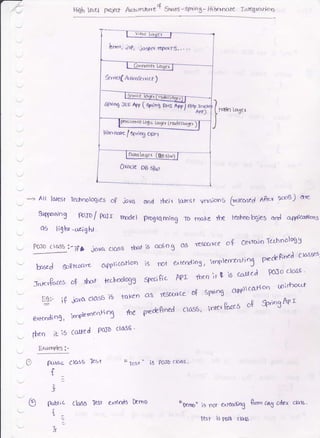 High level project Architecture of Struts-spring-Hibernate Integration
View Layer
html, JSP, Jasper reports.....
Controller Layer
Struts(ActionServlet)
Service Layer (model layer)
spring JEE App (spring RMI App / Http Invoker App)
persistence Logic Layer (model layer)
Hibernate / spring ORM
model Layer
Data Layer (DB s/w)
Oracle DB s/w
→ All latest Technologies of java and their latest versions (released After 2003) are
supporting POJO / POJI model programming To make the technologies and applications
as light-weight.
POJO class :- If a java class that is acting as resource of certain Technology
based software application is not extending, implementing predefined classes,
Interfaces of that technology specific API then it is called POJO class.
Eg:- if java class is taken as resource of spring application without
extending, implementing the predefined class, interfaces of spring API
then it is called POJO class.
Examples:-
① public class Test
{
}
"Test" is POJO class.
② public class Test extends Demo
{
}
"Demo" is not extending from any other class.
Test is POJO class